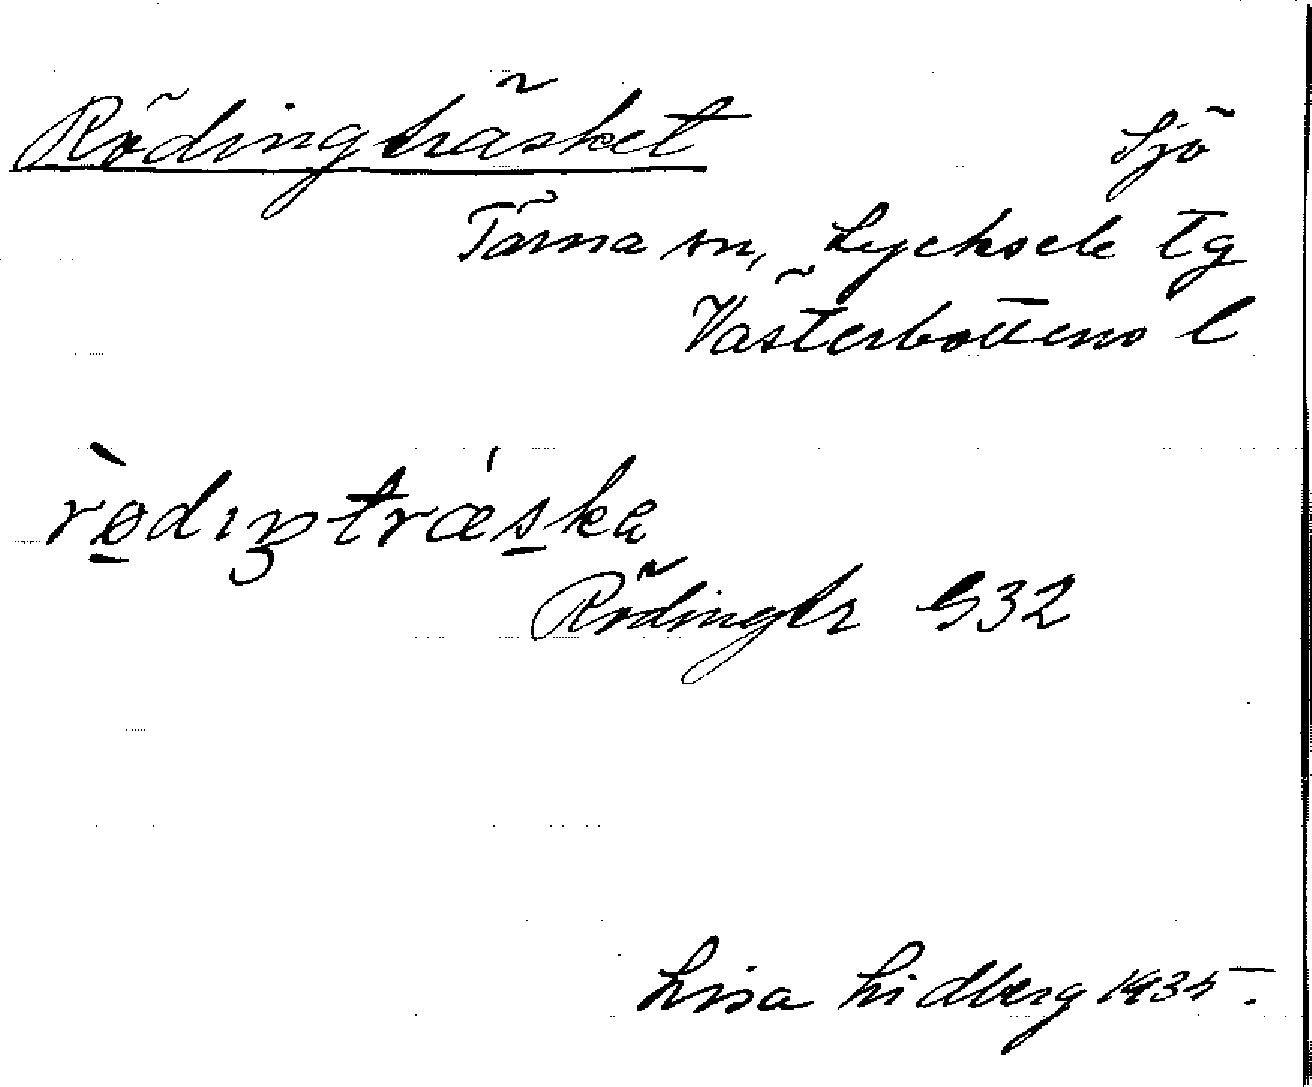 Rödingträsket Sjö
Tärna sn, Lycksele tg
Västerbottens l
rö̀dıŋtræ´ska
Rödingtr G32
Lisa Lidberg 1935.